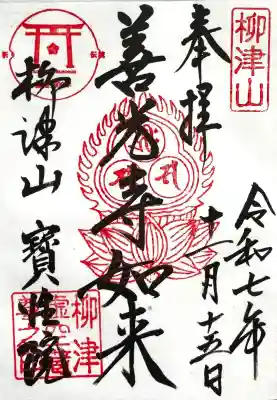 柳津山
奉拝
令和七年
十二月十五日
善光寺如来
柳津山 寶性院
柳津
虚空蔵尊